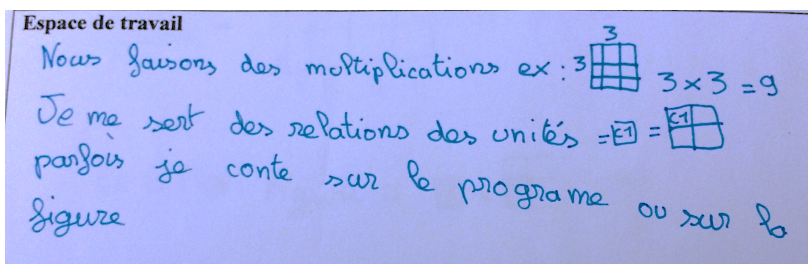 Espace de travail
Nous faisons des multiplications ex : 3 3 3 × 3 = 9
Je me sert des relations des unités = K1 = K1
parfois je conte sur le programe ou sur la
figure